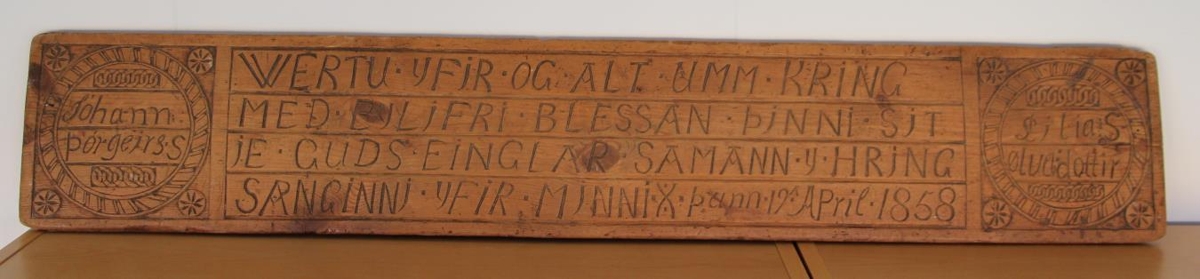 Johann.
Þorgeirs.S
WERTU · YFIR · OG · ALT · UMM · KRING
MED · EYLIFRI · BLESSAN · ÞINNI · SIT
IE · GUDS · EINGLAR · SAMANN · Y · HRING
SÆNGINNI · YFIR · MINNI X · þann · 19d April · 1858
Cilia:S
ølvadottir